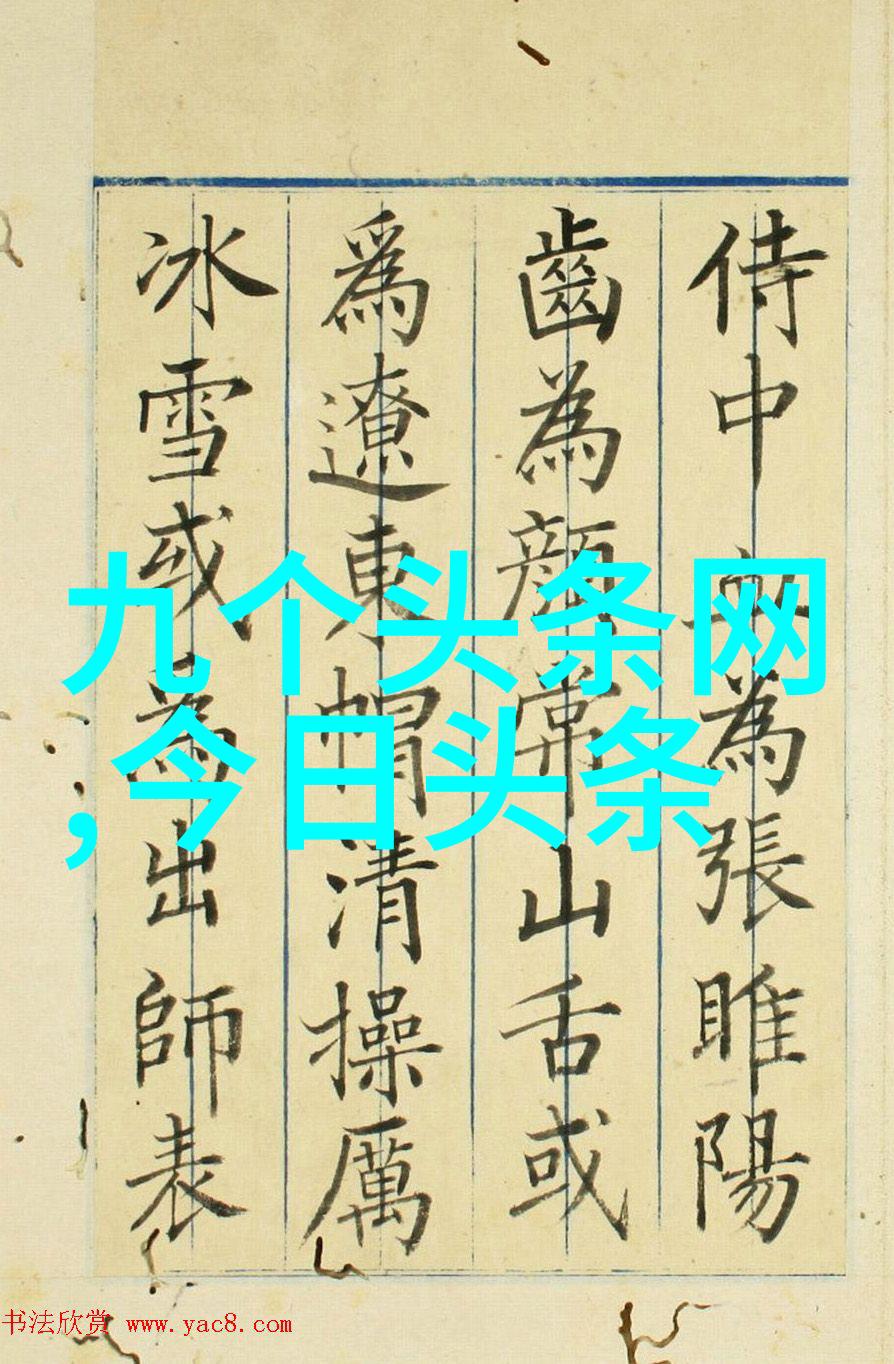 侍中血為張睢陽
齒為顔常山舌或
爲遼東帽清操厲
冰雪或為出師表
九个头条网
,今日头条
书法欣赏 www.yac8.com